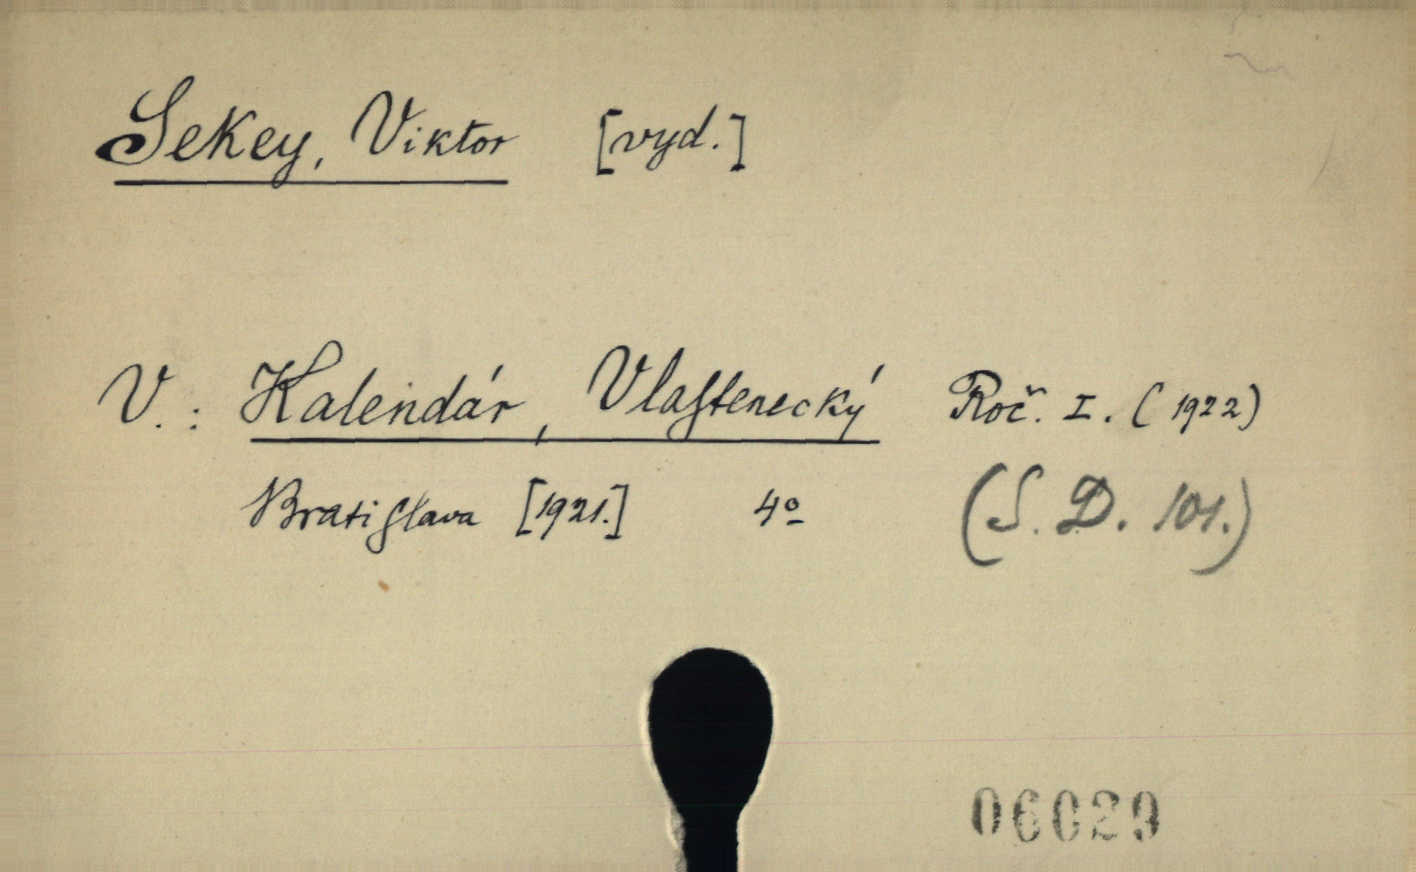 Sekey, Viktor [vyd.]
V.: Kalendár, Vlastenecký Roč. I. (1922)
Bratislava [1921.] 4º
(S. D. 101.)
06029